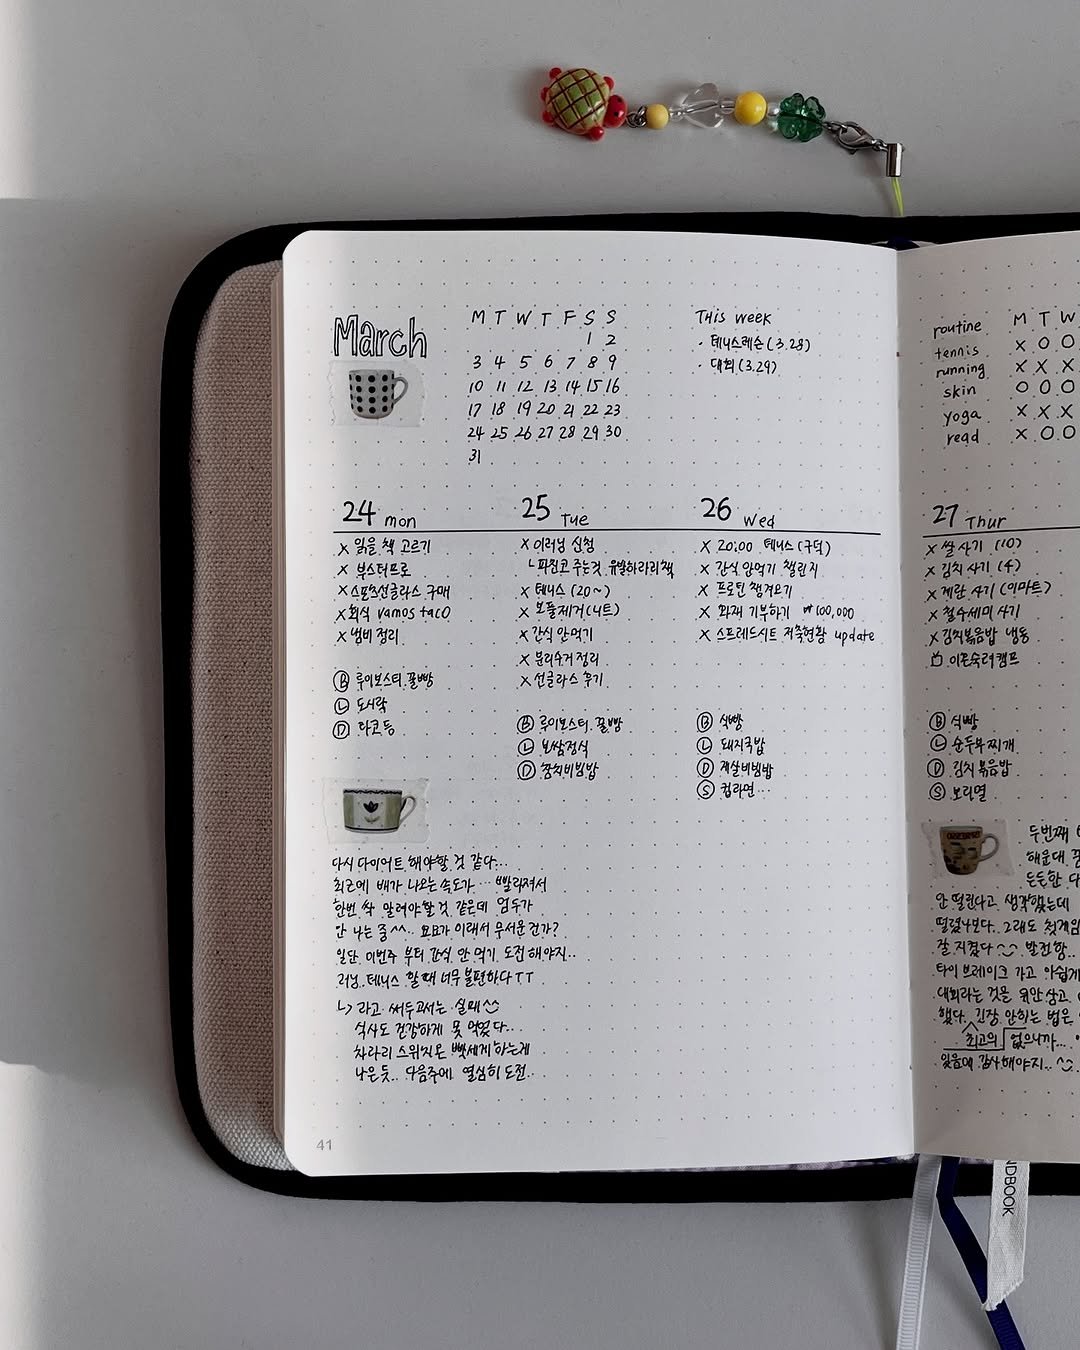 March
M T W T F S S
1 2
3 4 5 6 7 8 9
10 11 12 13 14 15 16
17 18 19 20 21 22 23
24 25 26 27 28 29 30
31
This week
· 테니스레슨 (3.28)
· 대회 (3.29)
24 mon
x 읽을 책 고르기
x 부스터프로
x 스포츠선글라스 구매
x 회식 vamos taco
x 냄비 정리
Ⓑ 루이보스티, 꿀빵
Ⓛ 도시락
Ⓓ 타코 등
25 Tue
x 이러닝 신청
ㄴ파친코 주는것 유발하라리책
x 테니스 (20~)
x 보풀제거 (니트)
x 간식 안먹기
x 분리수거 정리
x 선글라스 후기
Ⓑ 루이보스티, 꿀빵
Ⓛ 보쌈정식
Ⓓ 참치비빔밥
26 Wed
x 20:00 테니스 (구덕)
x 간식 안먹기 챌린지
x 프로틴 챙겨오기
x 화재 기부하기 ₩100,000
x 스프레드시트 저축현황 update
Ⓑ 식빵
Ⓛ 돼지국밥
Ⓓ 게살비빔밥
Ⓢ 컵라면...
다시 다이어트 해야할 것 같다...
최근에 배가 나오는 속도가 ... 빨라져서
한번 싹 말려야할것 같은데 엄두가
안 나는 중^^.. 요요가 이래서 무서운건가?
일단 이번주 부터 간식 안 먹기 도전해야지..
러닝, 테니스 할때 너무 불편하다 ㅜㅜ
ㄴ> 라고 써두고서는 실패
식사도 건강하게 못 먹었다...
차라리 스위치온 빡세게 하는게
나은듯.. 다음주에 열심히 도전..
41
routine M T W
tennis x O O
running x x x
skin O O O
yoga x x x
read x O O
27 Thur
x 쌀 사기 (10)
x 김치 사기 (4)
x 계란 사기 (이마트)
x 철수세미 사기
x 김치볶음밥 냉동
이존숙려캠프
Ⓑ 식빵
Ⓛ 순두부찌개
Ⓓ 김치볶음밥
Ⓢ 보리열
두번째
해운대
든든한 다
안 떨린다고 생각했는데
떨렸나보다. 그래도 첫게임
잘 지켰다 발전함..
타이브레이크 가고 아쉽게
대회라는 것을
했다. 긴장 안하는 법은
최고의 없으니까...
있음에 감사해야지..
NDBOOK